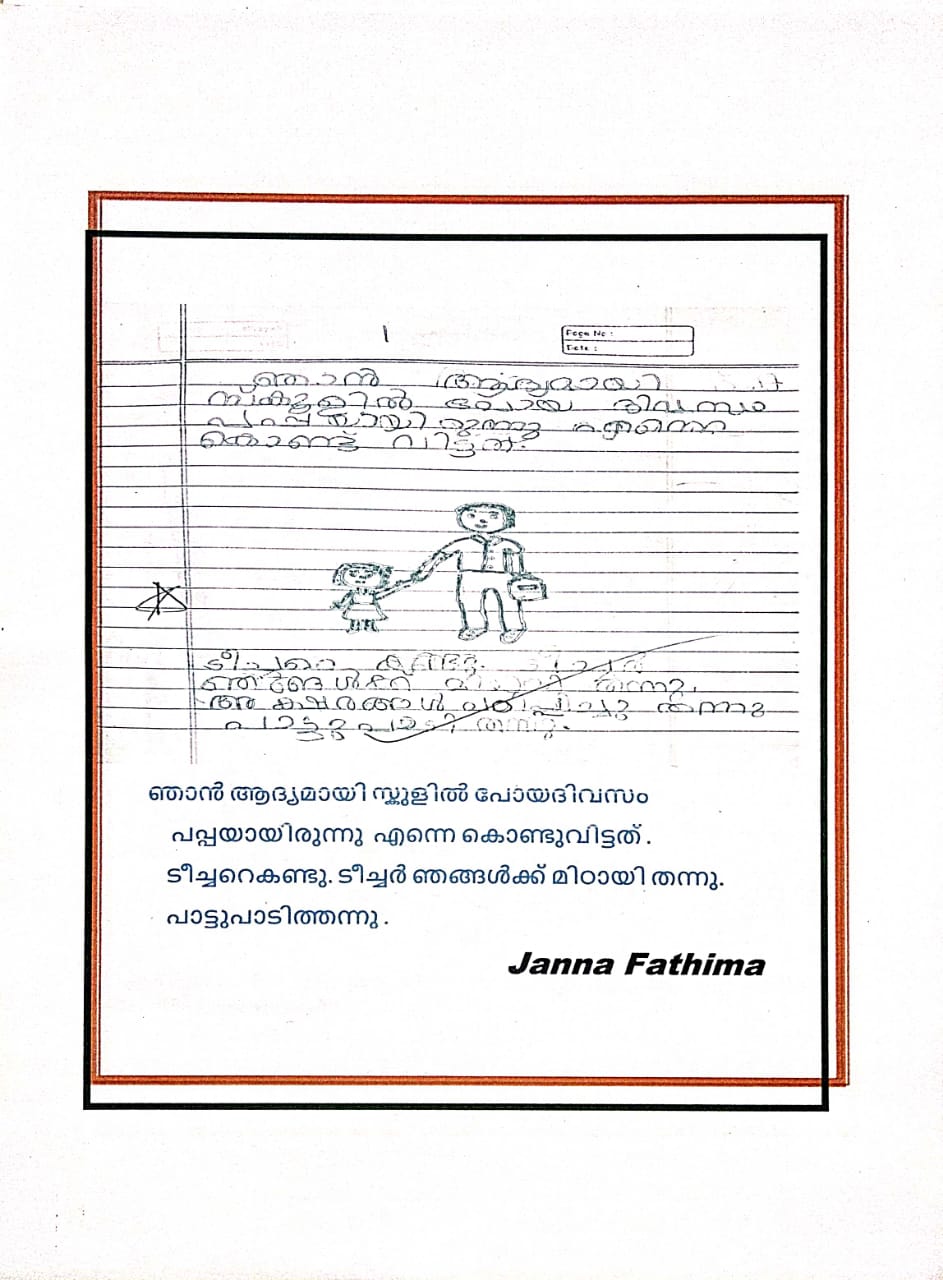 1
Page No :
Date :
ഞാൻ ആദ്യമായി
സ്കൂളിൽ പോയ ദിവസം
പപ്പയായിരുന്നു എന്നെ
കൊണ്ട് വിട്ടത്.
ടീച്ചറെ കണ്ടു. ടീച്ചർ
ഞങ്ങൾക്ക് മിഠായി തന്നു.
അക്ഷരങ്ങൾ പഠിപ്പിച്ചു തന്നു
പാട്ടുപാടി തന്നു.
ഞാൻ ആദ്യമായി സ്കൂളിൽ പോയദിവസം
പപ്പയായിരുന്നു എന്നെ കൊണ്ടുവിട്ടത് .
ടീച്ചറെകണ്ടു. ടീച്ചർ ഞങ്ങൾക്ക് മിഠായി തന്നു.
പാട്ടുപാടിത്തന്നു .
Janna Fathima